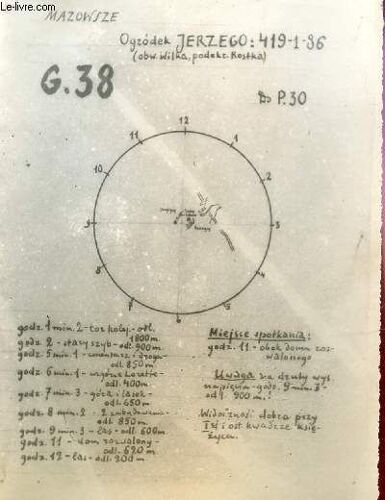 © Le-livre.com
MAZOWSZE
Ogródek JERZEGO: 419-1-36
(obw. Wilka, podokr. Kostka)
G.38
Do P.30
12
11
1
10
2
9
3
8
4
7
5
6
godz. 1 min. 2 - tor kolej. - odl. 1800 m
godz 2 - stary szyb - odl. 900 m
godz. 5 min. 1 - cmentarz i droga - odl. 850 m
godz. 6 min. 1 - odl. 400 m
godz. 7 min. 3 - góra i lasek - odl. 650 m
godz. 8 min. 2 - 2 zabudowania - odl. 850 m.
godz. 9 min. 3 - las - odl. 600 m
godz. 11 - dom rozwalony - odl. 620 m
godz. 12 - las - odl. 200 m
Miejsce spotkania:
godz. 11 - obok domu roz-
walonego
Uwaga na druty wys.
napięcia - godz. 9 min. 3 -
odl. 900 m.!
Widoczność dobra przy
I-szej i ost. kwadrze księ-
życa.